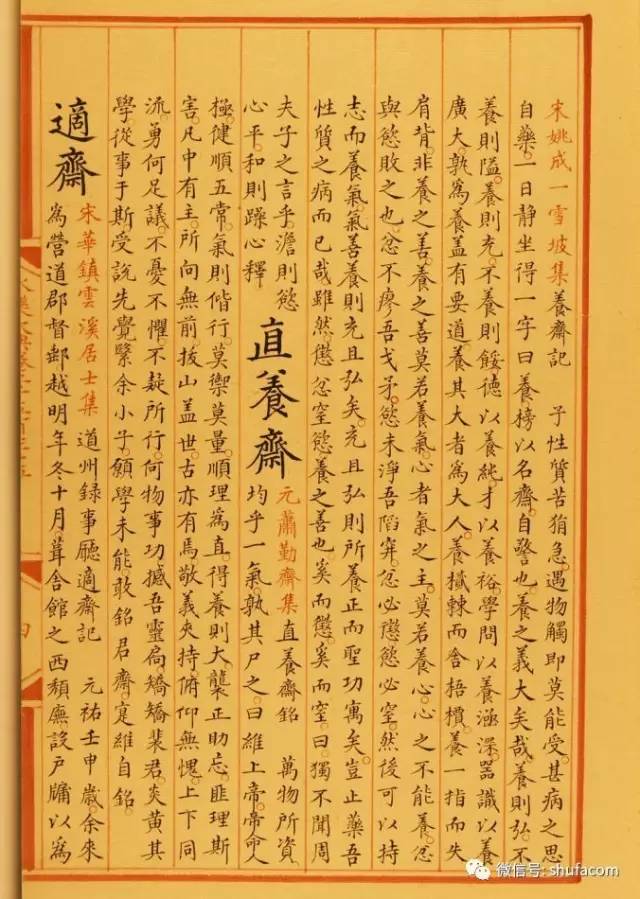 宋姚成一雪坡集養齋記 予性質苦狷急遇物觸即莫能受甚病之思
自藥一日静坐得一字曰養榜以名齋自警也養之義大矣哉養則弘不
養則隘養則充不養則餒德以養純才以養裕學問以養涵深器識以養
廣大孰為養蓋有要道養其大者為大人養樲棘而舍梧檟養一指而失
肩背非養之善養之善莫若養氣心者氣之主莫若養心心之不能養忿
與慾敗之也忿不廖吾戈矛慾未淨吾陷穽忿必懲慾必窒然後可以持
志而養氣氣善養則充且弘矣充且弘則所養正而聖功寓矣豈止藥吾
性質之病而已哉雖然懲忿窒慾養之善也奚而懲奚而窒曰獨不聞周
夫子之言乎澹則慾
心平和則躁心釋
直養齋
元蕭勤齋集直養齋銘 萬物所資
均乎一氣孰其尸之曰維上帝帝命人
極健順五常氣則偕行莫禦莫量順理為直得養則大襲正助忘匪理斯
害凡中有主所向無前拔山蓋世古亦有焉敬義夾持俯仰無愧上下同
流勇何足議不憂不懼不疑所行何物事功撼吾靈扃矯矯裴君炎黃其
學從事于斯受説先覺緊余小子願學未能敢銘君齋寔維自銘
適齋
宋華鎮雲溪居士集 道州録事廳適齋記 元祐壬申歲余來
為營道郡督郵越明年冬十月葺舍館之西頽廡設戸牖以為
四
微信号: shufacom